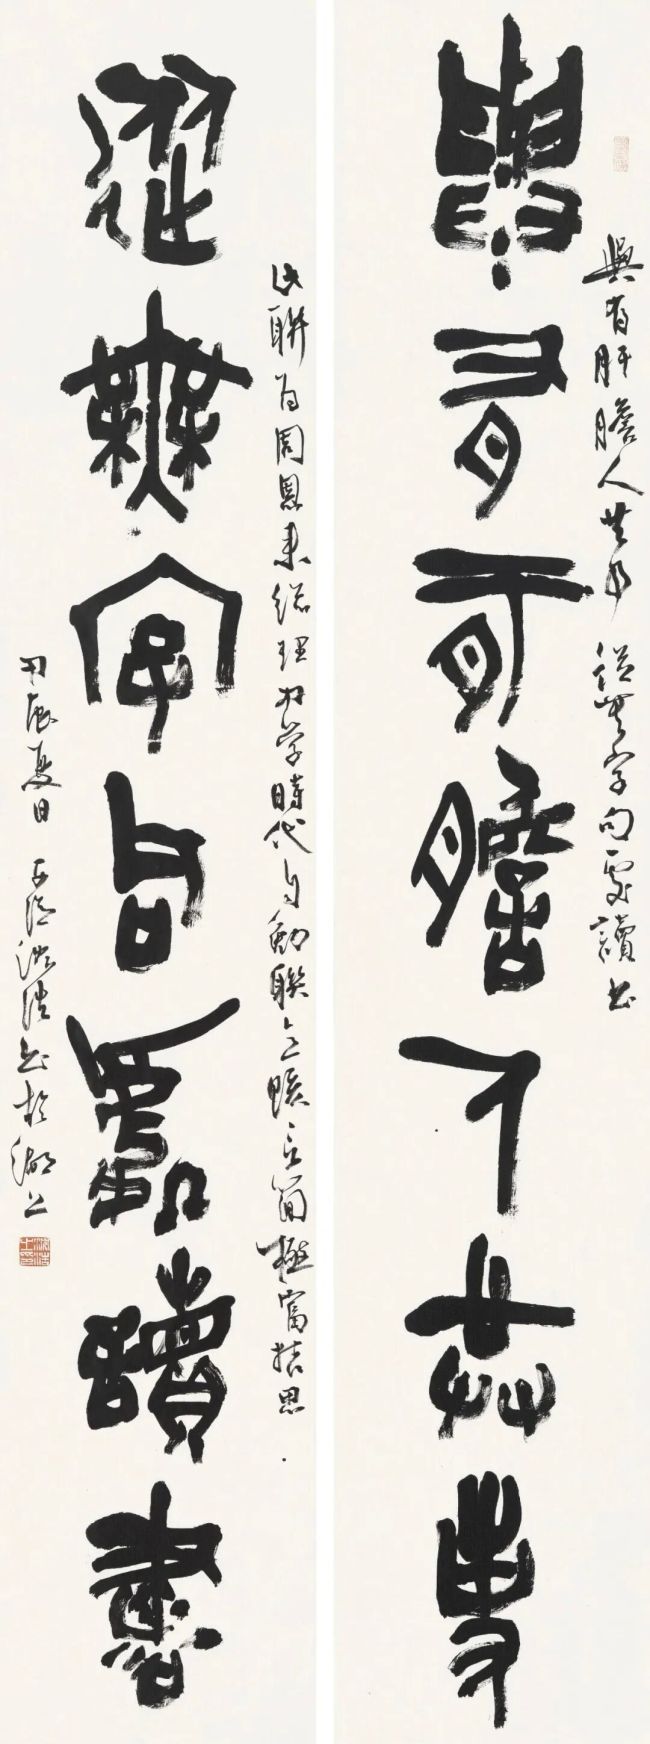 與有肝膽人共事 從無字句處讀書
與有肝膽人共事
此聯為周恩來總理求學時代自勉聯言簡極富哲思
從無字句處讀書
甲辰夏日 浩書於湖上